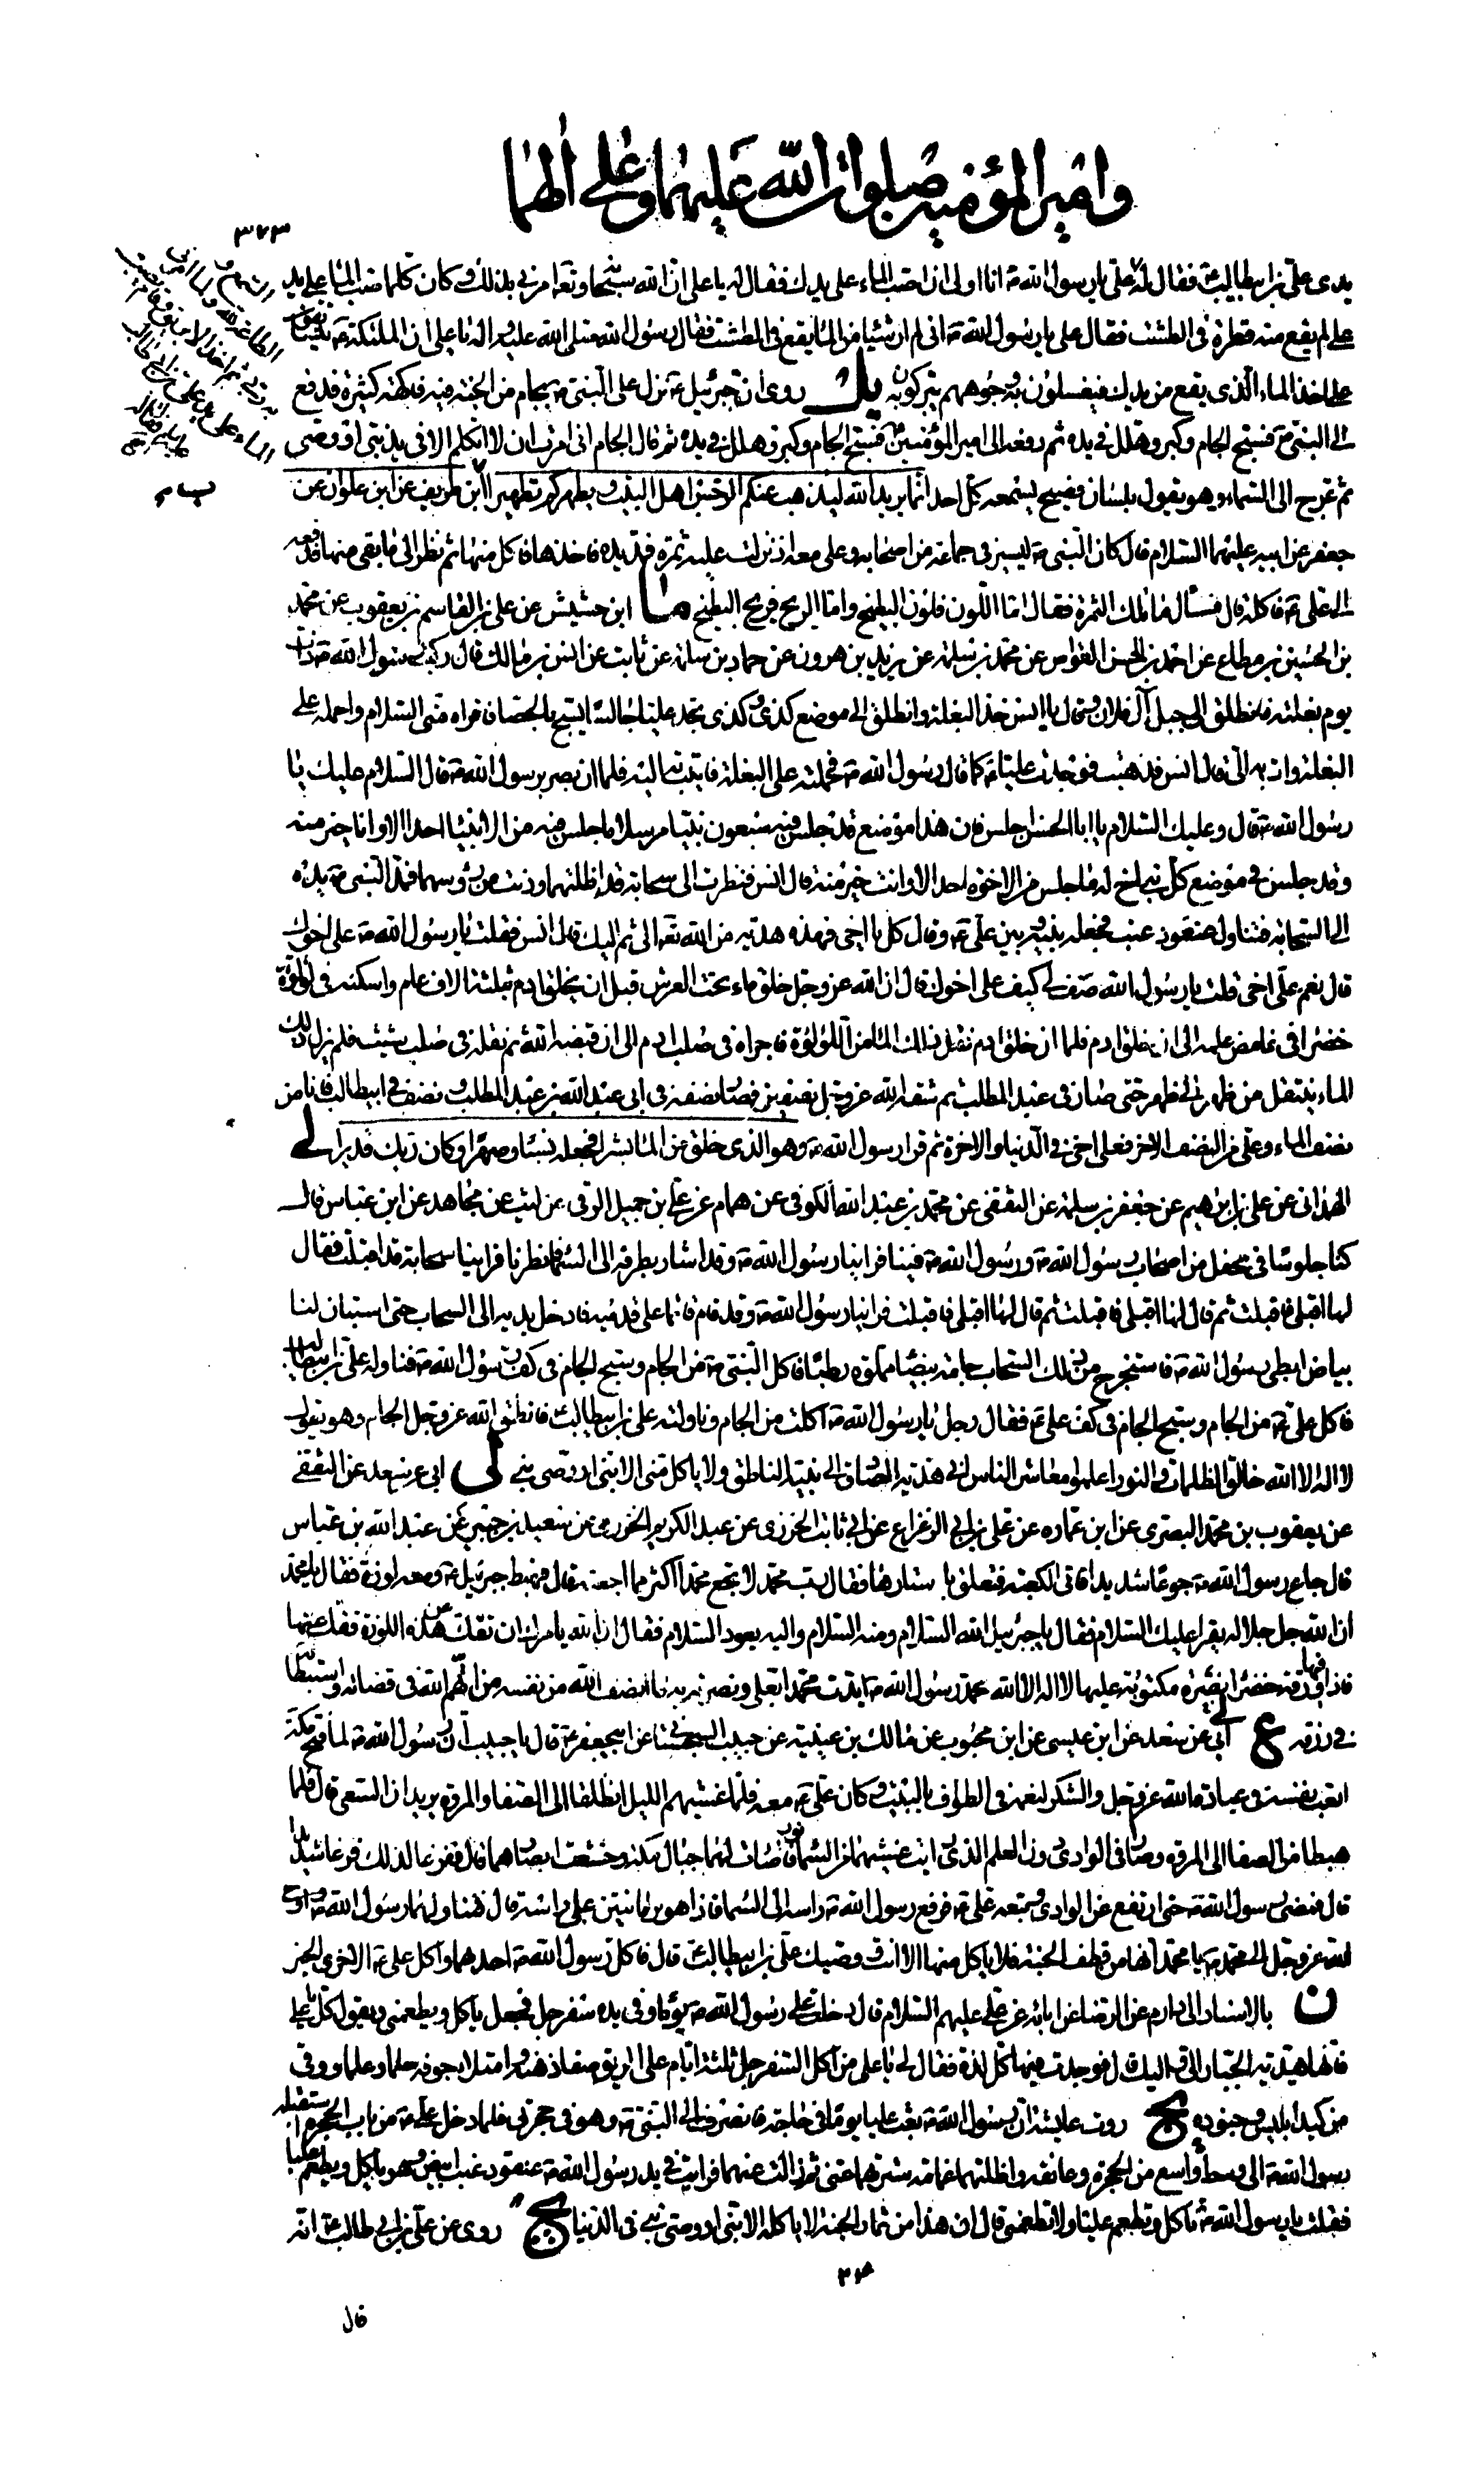 وامير المؤمنين صلوات الله عليهما وعلى الهما
٣٧٣
يدى على بن ابيطالب ع فقال له على يا رسول الله ص انا اولى ان اصب الماء على يدك فقال له يا على ان الله سبحانه وتعالى امرنى بذلك وكان كلما صب الماء على يد
على لم يقع منه قطرة فى الطشت فقال على يا رسول الله ص انى لم ار شيئا من الماء يقع فى الطشت فقال رسول الله صلى الله عليه واله يا على ان الملئكة ع يتسابقون
على اخذ الماء الذى يقع من يدك فيغسلون به وجوههم يتبركون به يل روى ان جبرئيل ع نزل على النبى ص بجام من الجنة فيه فاكهة كثيرة فدفع
الى النبى ص فسبح الجام وكبر وهلل فى يده ثم دفعه الى امير المؤمنين فسبح الجام وكبر وهلل فى يده ثم قال الجام انى امرت ان لا اتكلم الا فى يد نبى او وصى
ثم عرج الى السماء وهو يقول بلسان فصيح يسمعه كل احد انما يريد الله ليذهب عنكم الرجس اهل البيت ويطهركم تطهيرا ابن طريف عن ابن علوان عن
جعفر عن ابيه عليهما السلام قال كان النبى ص يسير فى جماعة من اصحابه وعلى معه اذ نزلت عليه ثمرة فمد يده فاخذها فاكل منها ثم نظر الى ما بقى منها فدفعه
الى على ع فاكله قال فسأل ما تلك الثمرة فقال اما اللون فلون البطيخ واما الريح فريح البطيخ ما ابن حشيش عن على بن القاسم بن يعقوب عن محمد
بن الحسين بن مطاع عن احمد بن الحسن القواس عن محمد بن سلمة عن يزيد بن هرون عن حماد بن سلمة عن ثابت عن انس بن مالك قال ركب رسول الله ص ذات
يوم بغلته فانطلق الى جبل آل فلان وقال يا انس خذ البغلة وانطلق الى موضع كذى وكذى تجد عليا جالسا يسبح بالحصا فاقراه منى السلام واحمله على
البغلة وات به الى قال انس فذهبت فوجدت عليا ع كما قال رسول الله ص فحملته على البغلة فاتيت به اليه فلما ان بصر برسول الله ص قال السلام عليك يا
رسول الله ص قال وعليك السلام يا ابا الحسن اجلس فان هذا موضع قد جلس فيه سبعون نبيا مرسلا ما جلس فيه من الانبياء احد الا وانا خير منه
وقد جلس فى موضع كل نبى اخ له ما جلس من الاخوة احد الا وانت خير منه قال انس فنظرت الى سحابة قد اظلتهما ودنت من رؤسهما فمد النبى ص يده
الى السحابة فتناول عنقود عنب فجعله بينه وبين على ع وقال كل يا اخى فهذه هدية من الله تعالى الى ثم اليك قال انس فقلت يا رسول الله ص على اخوك
قال نعم على اخى قلت يا رسول الله صف لى كيف على اخوك قال ان الله عز وجل خلق ماء تحت العرش قبل ان يخلق ادم بثلثة الاف عام واسكنه فى لؤلؤة
خضراء فى غامض علمه الى ان خلق ادم فلما ان خلق ادم نقل ذلك الماء من اللؤلؤة فاجراه فى صلب ادم الى ان قبضه الله ثم نقله فى صلب شيث فلم يزل ذلك
الماء ينتقل من ظهر الى ظهر حتى صار فى عبد المطلب ثم شقه الله عز وجل بنصفين فصار نصفه فى ابى عبد الله بن عبد المطلب ونصف فى ابيطالب فانا من
نصف الماء وعلى من النصف الاخر فعلى اخى فى الدنيا والاخرة ثم قرا رسول الله ص وهو الذى خلق من الماء بشرا فجعله نسبا وصهرا وكان ربك قديرا لى
الهمدانى عن على بن ابرهيم عن جعفر بن سلمة عن الثقفى عن محمد بن عبد الله الكوفى عن همام عن على بن جميل الرقى عن ليث عن مجاهد عن ابن عباس قال
كنا جلوسا فى محفل من اصحاب رسول الله ص ورسول الله ص فينا فراينا رسول الله ص وقد اشار بطرفه الى السماء فنظرنا فراينا سحابة قد اقبلت فقال
لها اقبلى فاقبلت ثم قال لها اقبلى فاقبلت ثم قال لها اقبلى فاقبلت فراينا رسول الله ص وقد قام قائما على قدميه فادخل يديه الى السحاب حتى استبان لنا
بياض ابطى رسول الله ص فاستخرج من ذلك السحاب جامة بيضاء مملوة رطبا فاكل النبى ص من الجام وسبح الجام فى كف رسول الله ص فناوله على بن ابيطالب
فاكل على ع من الجام وسبح الجام فى كف على ع فقال رجل يا رسول الله ص اكلت من الجام وناولته على بن ابيطالب فانطق الله عز وجل الجام وهو يقول
لا اله الا الله خالق الظلمات والنور اعلموا معاشر الناس انى هدية الصادق الى نبيه الناطق ولا ياكل منى الا نبى او وصى نبى لى ابى عن سعد عن الثقفى
عن يعقوب بن محمد البصرى عن ابن عمارة عن على بن ابى الزعزاع عن ابى ثابت الخزرى عن عبد الكريم الخزرى عن سعيد بن جبير عن عبد الله بن عباس
قال جاع رسول الله ص جوعا شديدا فاتى الكعبة فتعلق باستارها فقال رب محمد لا تجع محمدا اكثر مما اجعته قال فهبط جبرئيل ع ومعه لوزة فقال يا محمد
ان الله جل جلاله يقرا عليك السلام فقال يا جبرئيل الله السلام ومنه السلام واليه يعود السلام فقال ان الله يامرك ان تفك عن هذه اللوزة ففك عنها
فاذا فيها ورقة خضراء نضرة مكتوبة عليها لا اله الا الله محمد رسول الله ص ايدت محمدا بعلى ونصرته به ما انصف الله من نفسه من اتهم الله فى قضائه واستبطأ
فى رزقه ع لى ابى عن سعد عن ابن عيسى عن ابن محبوب عن مالك بن عيينة عن حبيب السجستانى عن ابيجعفر ع قال يا حبيب ان رسول الله ص لما فتح مكة
اتعب نفسه فى عبادة الله عز وجل والشكر لنعمه فى الطواف بالبيت وكان على ع معه فلما غشيهم الليل انطلقا الى الصفا والمروة يريدان السعى قال فلما
هبطا من الصفا الى المروة وصارا فى الوادى دون العلم الذى رايت غشيهما من السماء نور فضاءت لهما جبال مكة وخشعت ابصارهما قال ففزعا لذلك فزعا شديدا
قال فمضى رسول الله ص حتى ارتفع عن الوادى وتبعه على ع فرفع رسول الله ص راسه الى السماء فاذا هو برمانتين على راسه قال فتناولهما رسول الله ص فاوحى
الله عز وجل الى محمد ص يا محمد انها من قطف الجنة فلا ياكل منها الا انت ووصيك على بن ابيطالب ع قال فاكل رسول الله ص احدهما واكل على ع الاخرى الخبر
ن بالاسناد الى دارم عن الرضا عن ابائه عن على عليهم السلام قال دخلت على رسول الله ص يوما وفى يده سفرجل فجعل ياكل ويطعمنى ويقول كل يا على
فانها هدية الجبار الى واليك قال فوجدت فيها كل لذة فقال لى يا على من اكل السفرجل ثلثة ايام على الريق صفا ذهنه وامتلا جوفه حلما وعلما ووقى
من كيد ابليس وجنوده يج روت عايشة ان رسول الله ص بعث عليا يوما فى حاجة فانصرف الى النبى ص وهو فى حجرتى فلما دخل على ع من باب الحجرة استقبله
رسول الله ص الى وسط واسع من الحجرة وعانقه واظلتهما غمامة سترتهما عنى ثم زالت عنهما فرايت فى يد رسول الله ص عنقود عنب ابيض وهو ياكل ويطعم عليا
فقلت يا رسول الله ص تاكل وتطعم عليا ولا تطعمنى قال ان هذا من ثمار الجنة لا ياكله الا نبى او وصى نبى فى الدنيا يج روى عن على بن ابى طالب ع انه
قال